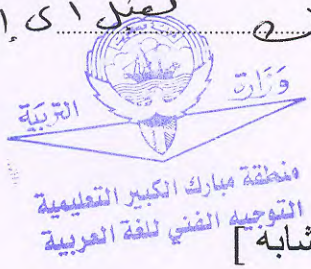 تقبل أي إ
وزارة التربية
منطقة مبارك الكبير التعليمية
التوجيه الفني للغة العربية
شابه ]